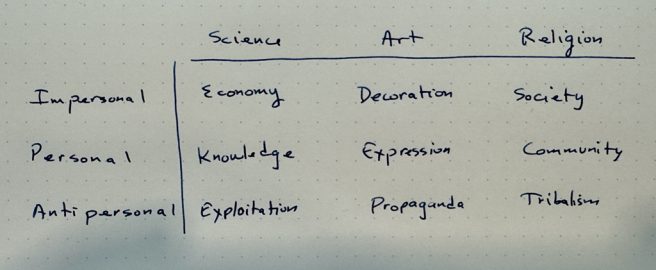 Science Art Religion
Impersonal Economy Decoration Society
Personal Knowledge Expression Community
Antipersonal Exploitation Propaganda Tribalism